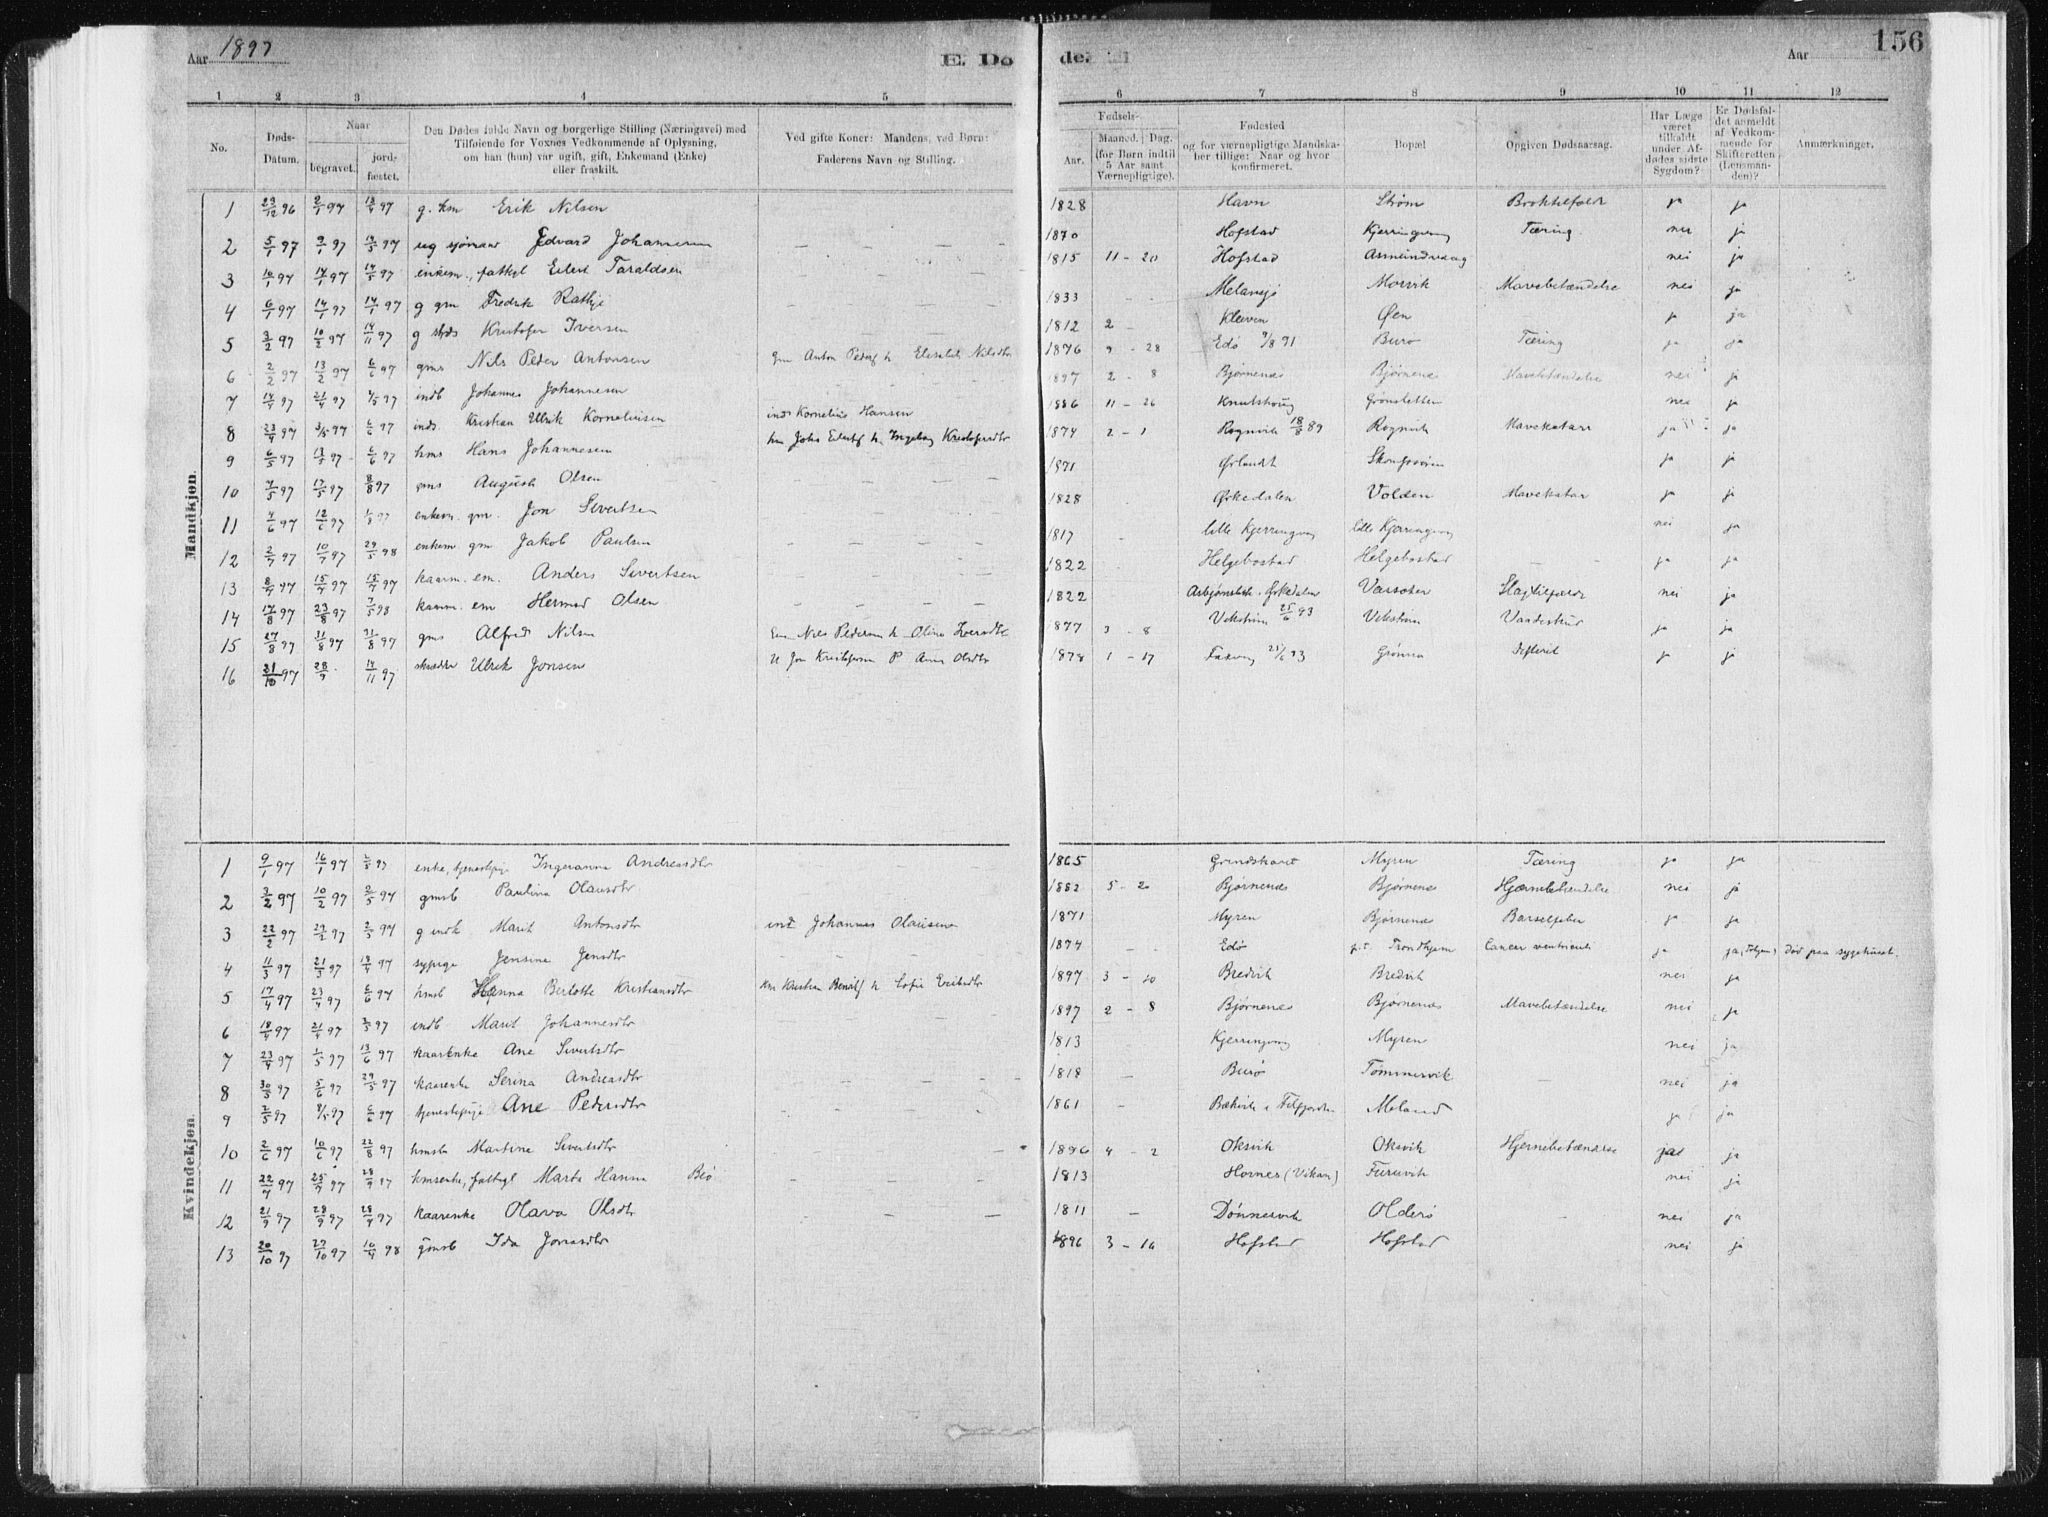 Aar 1897
E. Dø
de:
Aar
156
1 2 3 4 5 6 7 8 9 10 11 12
No.
Døds-Datum.
Naar
begravet.
jord-fæstet.
Den Dødes fulde Navn og borgerlige Stilling (Næringsvei) med
Tilføiende for Voxnes Vedkommende af Oplysning,
om han (hun) var ugift, gift, Enkemand (Enke)
eller fraskilt.
Ved gifte Koner: Mandens, ved Børn:
Faderens Navn og Stilling.
Fødsels-
Aar.
Maaned. Dag.
(for Børn indtil
5 Aar samt
Værnepligtige).
Fødested
og for værnepligtige Mandska-
ber tillige: Naar og hvor
konfirmeret.
Bopæl
Opgiven Dødsaarsag.
Har Læge
været
tilkaldt
under Af-
dødes sidste
Sygdom?
Er Dødsfal-
det anmeldt
af Vedkom-
mende for
Skifteretten
(Lensman-
den)?
Anmærkninger.
Mandkjøn.
1 29/12 96 2/1 97 13/4 97 g. km Erik Nilsen 1828 Havn Strøm ja ja
2 5/1 97 9/1 97 14/5 97 Edvard Johannesen — — — 1870 Hofstad Kjerringvaag Tæring nei ja
3 10/1 97 14/1 97 14/5 97 enkem., fattigl Eilert Taraldsen — — — 1815 11 - 20 Hofstad nei ja
4 6/1 97 14/1 97 14/1 97 g gm Fredrik Rathje — — — 1833 Melansjø Morvik Mavebetændelse nei ja
5 3/2 97 10/2 97 14/11 97 g Kristofer Iversen — — — 1812 2 Kleiven Øen ja ja
6 2/2 97 13/2 97 6/6 97 gms Nils Peder Antonsen gm Anton Peders h Nilsdtr 1876 9 - 28 Edø 9/8 91 Burø Tæring ja ja
7 14/4 97 21/4 97 2/5 97 indb Johannes Johannesen 1897 2 - 8 Bjørnenes Bjørnenes Mavebetændelse nei ja
8 23/4 97 3/5 97 6/6 97 inds. Kristian Ulrik Korneliusen inds Kornelius Hansen 1886 11 - 26 Knutshoug Grønsletten nei ja
9 6/5 97 13/5 97 6/6 97 hms Hans Johannesen hm Johs h Ingeborg Kristofersdtr 1874 2 - 1 Rognvik 18/8 89 Rognvik Mavekatarr ja ja
10 7/5 97 17/5 97 8/8 97 gms August Olsen 1871 Ørlandt ja ja
11 4/6 97 12/6 97 1/8 97 enkem. gm. Jon Sivertsen 1828 Ørkedalen Volden Mavekatar ja ja
12 2/7 97 10/7 97 29/5 98 enkem. gm Jakob Paulsen — — — 1817 lille Kjerringvaag lille Kjerringvaag nei ja
13 8/7 97 15/7 97 15/7 97 kaarm. em. Anders Sivertsen 1822 Helgebostad Helgebostad — — ja ja
14 17/8 97 23/8 97 7/5 98 kaarm. em Hermod Olsen — — — 1822 Ørkedalen Slagtilfælde nei ja
15 27/8 97 31/8 97 31/8 97 gms Alfred Nilsen Nils Pedersen h Olina 1877 3 - 8 Vikstrøm 25/6 93 Vikstrøm ja ja
16 21/10 97 28/9 14/11 97 Ulrik Jonsen Jon Anne Olsdtr 1878 1 - 17 25/6 93 Grønna Difterit ja ja
Kvindekjøn.
1 9/1 97 16/1 97 97 enke, tjenestepige Ingeranna Andreasdtr — — 1865 Grindskaret Myren Tæring ja ja
2 3/2 97 10/2 97 2/5 97 gmsb Paulina Olausdtr — — — 1882 5 - 20 Bjørnenes Bjørnenes Hjernebetændelse nei ja
3 22/2 97 27/2 97 2/5 97 g indk Marit Antonsdtr ind Johannes Olausen 1871 Myren Bjørnenes Barselfeber ja ja
4 11/3 97 21/3 97 18/4 97 sypige Jensine Jensdtr — — — 1874 — Edø p.t. Trondhjem Cancer ventriculi ja ja, død paa sygehuset.
5 17/4 97 23/4 97 6/6 97 hmsb Hanna Berlotte Kristiansdtr Km Kristian h Sofie 1897 3 - 10 Bredvik Bredvik nei ja
6 18/4 97 21/4 97 2/5 97 indb Marit Johannesdtr 1897 2 - 8 Bjørnenes Bjørnenes Mavebetændelse nei ja
7 23/4 97 1/5 97 13/6 97 kaarenke Ane Sivertsdtr — — — 1813 Kjerringvaag Myren nei ja
8 30/5 97 5/6 97 29/5 97 kaarenke Serina Andreasdtr — — — 1818 Burø Tømmervik — nei ja
9 2/5 97 8/5 97 6/6 97 tjenestepige Ane Pedersdtr — — — 1861 — Bækvik i Fillfjorden Meland ja ja
10 2/6 97 10/6 97 22/8 97 hmsb Martine Sivertsdtr — — 1896 4 - 2 Oksvik Oksvik Hjernebetændelse ja ja
11 22/7 97 25/7 97 28/9 97 hmsenke, fattigl Marta Hanna Beø — — 1813 Hornes (Vikan) Furuvik nei ja
12 21/9 97 28/9 97 28/9 97 kaarenke Olava Olsdtr — — — 1811 — Dønnesvik Olderø — nei ja
13 20/10 97 27/10 97 10/4 98 gmsb Ida Jonasdtr 1896 3 - 16 Hofstad Hofstad nei ja